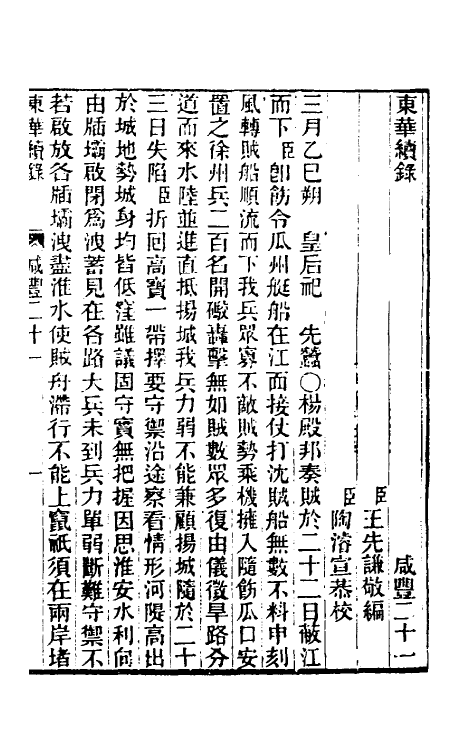 東華續錄　咸豐二十一
臣王先謙敬編
臣陶濬宣恭校
三月乙巳朔　皇后祀　先蠶○楊殿邦奏賊於二十二日蔽江
而下臣卽飭令瓜州艇船在江面接仗打沈賊船無數不料申刻
風轉賊船順流而下我兵眾寡不敵賊勢乘機擁入隨飭瓜口安
置之徐州兵二百名開礮轟擊無如賊數眾多復由儀徵旱路分
道而來水陸並進直抵揚城我兵力弱不能兼顧揚城隨於二十
三日失陷臣折回高寶一帶擇要守禦沿途察看情形河隄高出
於城地勢城身均皆低窪雖議固守實無把握因思淮安水利向
由牐壩啟閉爲洩蓄見在各路大兵未到兵力單弱斷難守禦不
若啟放各牐壩洩盡淮水使賊舟滯行不能上竄祇須在兩岸堵
東華續錄　咸豐二十一　一